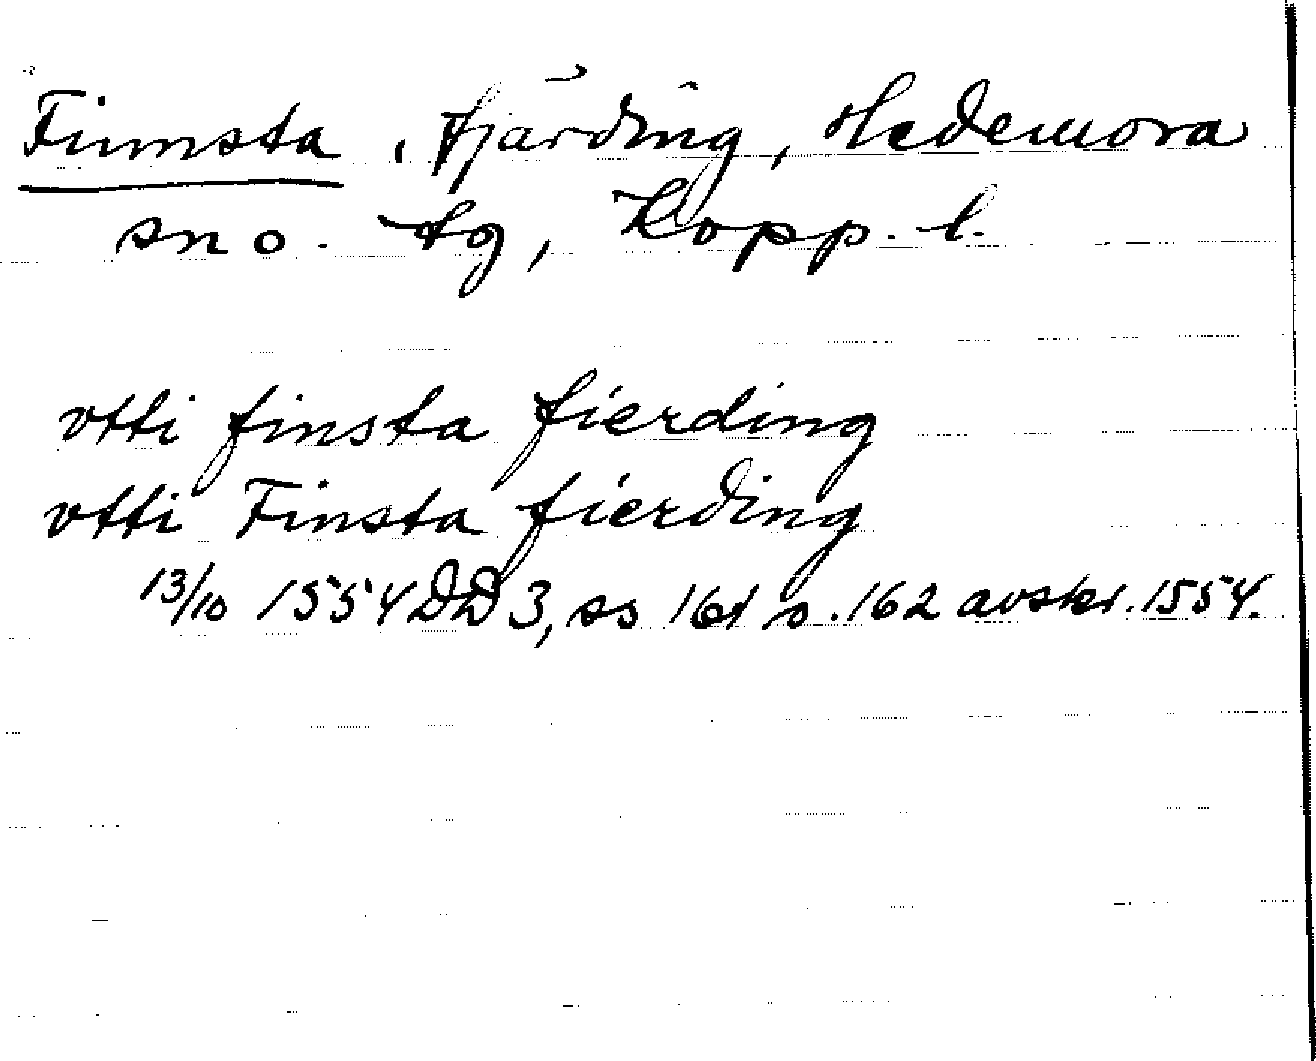 Finnsta, fjärding, Hedemora
sn o. tg, Kopp. l.
vtti finsta fierding
vtti Finsta fierding
13/10 1554 DD 3, ss 161 o. 162 avskr. 1554.